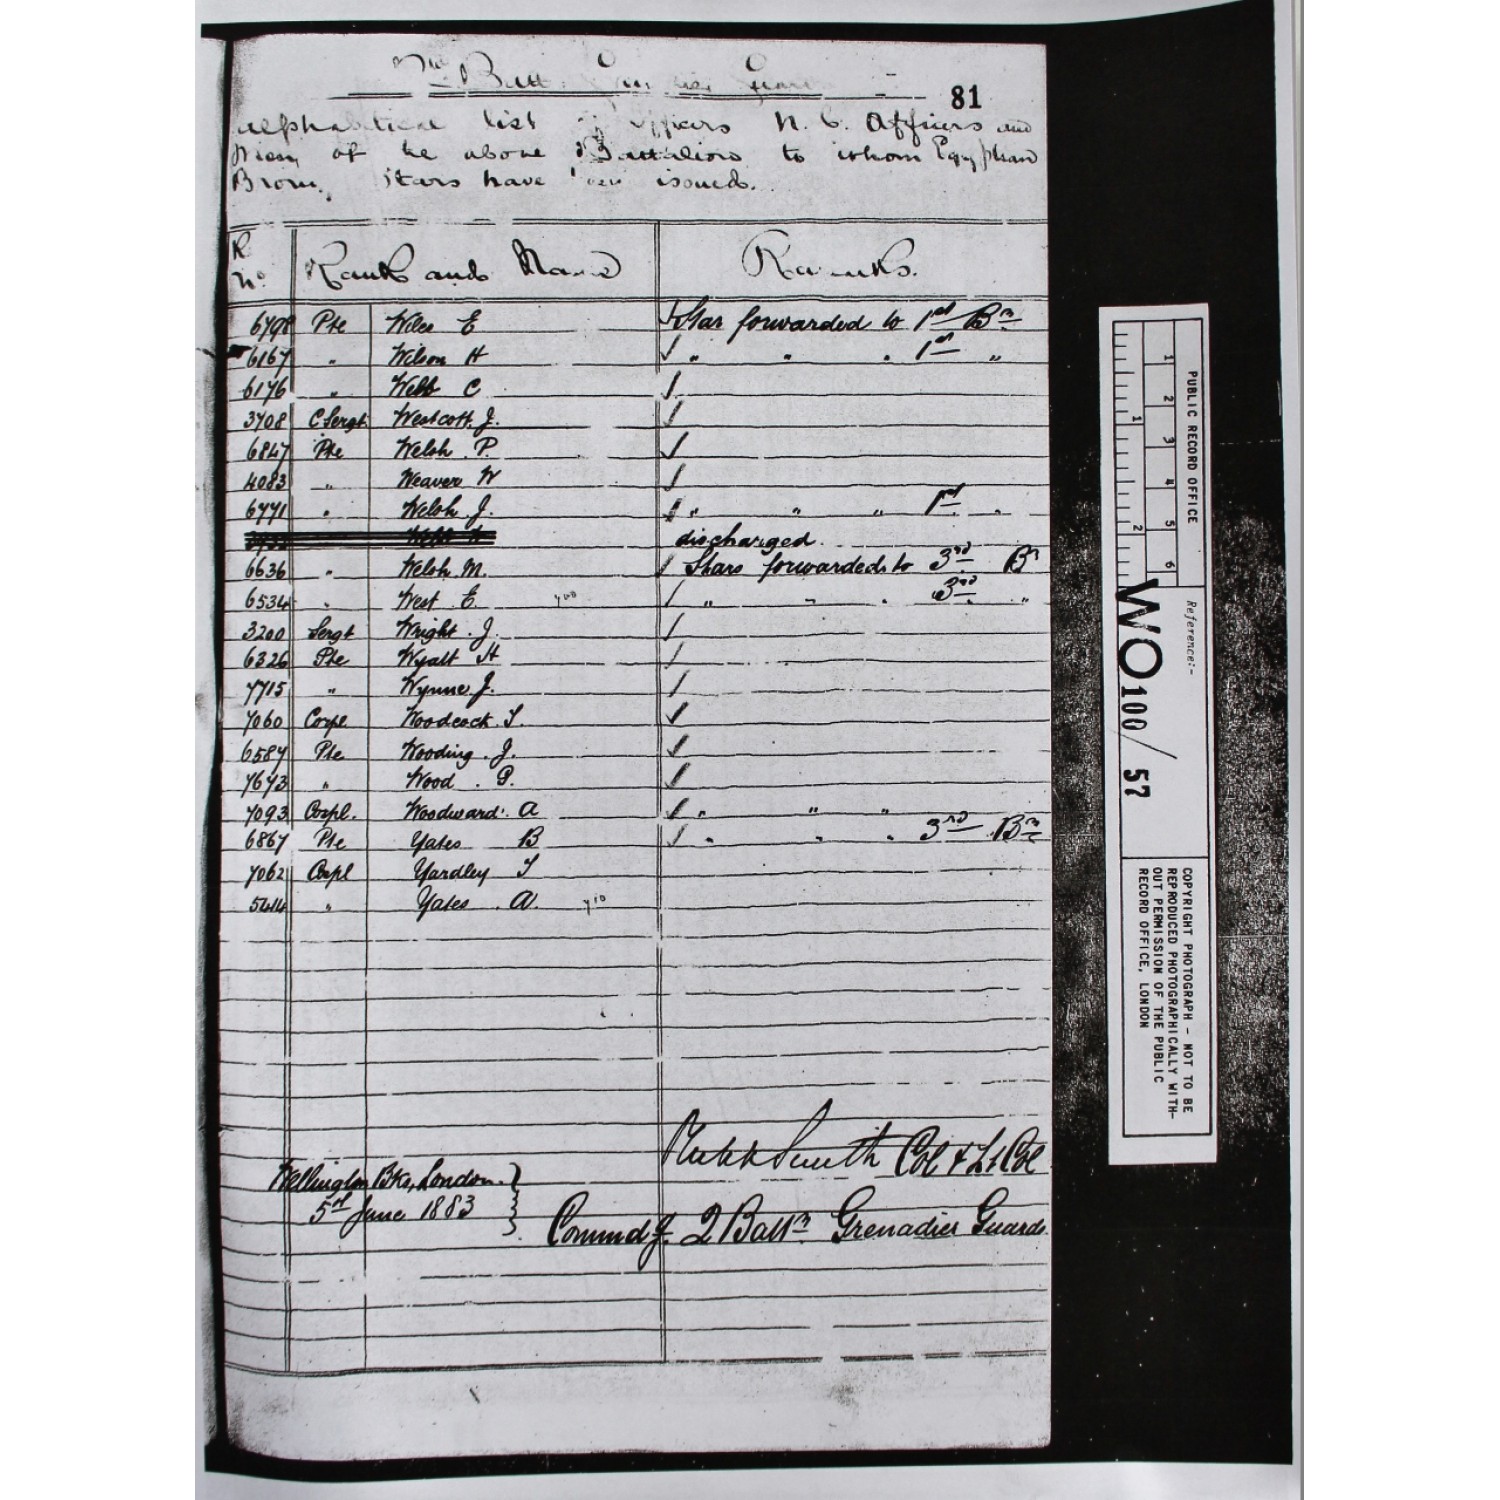 81
2nd Batt. Grenadier Guards
Alphabetical list of Officers N. C. Officers and
Men of the above Battalion to whom Egyptian
Bronze Stars have been issued.
R
No. Rank and Name Remarks.
6798 Pte Wiles E Star forwarded to 1st Bn
6167 " Wilson H " " " 1st "
6176 " Webb C
3708 C Sergt Westcott. J.
6847 Pte Welsh. P.
4083 " Weaver W
6771 " Welsh. J. " " " 1st "
discharged.
6636 " Welsh. M. Stars forwarded to 3rd Bn
6534 " West. E. " " " 3rd "
3200 Sergt Wright. J.
6326 Pte Wyatt H
7715 " Wynne. J.
7060 Corpl Woodcock. T.
6587 Pte Wooding. J.
7673 " Wood. G.
7093 Corpl. Woodward. A " " "
6867 Pte Yates B " " " 3rd Bn
7062 Corpl Yardley T
5414 " Yates. A.
Smith Col & Lt Col
Wellington Bks, London.
5th June 1883
Commdg. 2 Battn. Grenadier Guards
PUBLIC RECORD OFFICE
1 2 3 4 5 6
1 2
Reference:-
WO 100 / 57
COPYRIGHT PHOTOGRAPH - NOT TO BE
REPRODUCED PHOTOGRAPHICALLY WITH-
OUT PERMISSION OF THE PUBLIC
RECORD OFFICE, LONDON